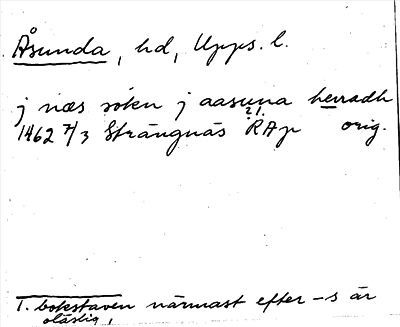 Åsunda, hd, Upps. l.
j næs sokn j aasuna herradh
1462 7/3 Strängnäs RAp orig.
1. bokstaven närmast efter -s är
oläslig,